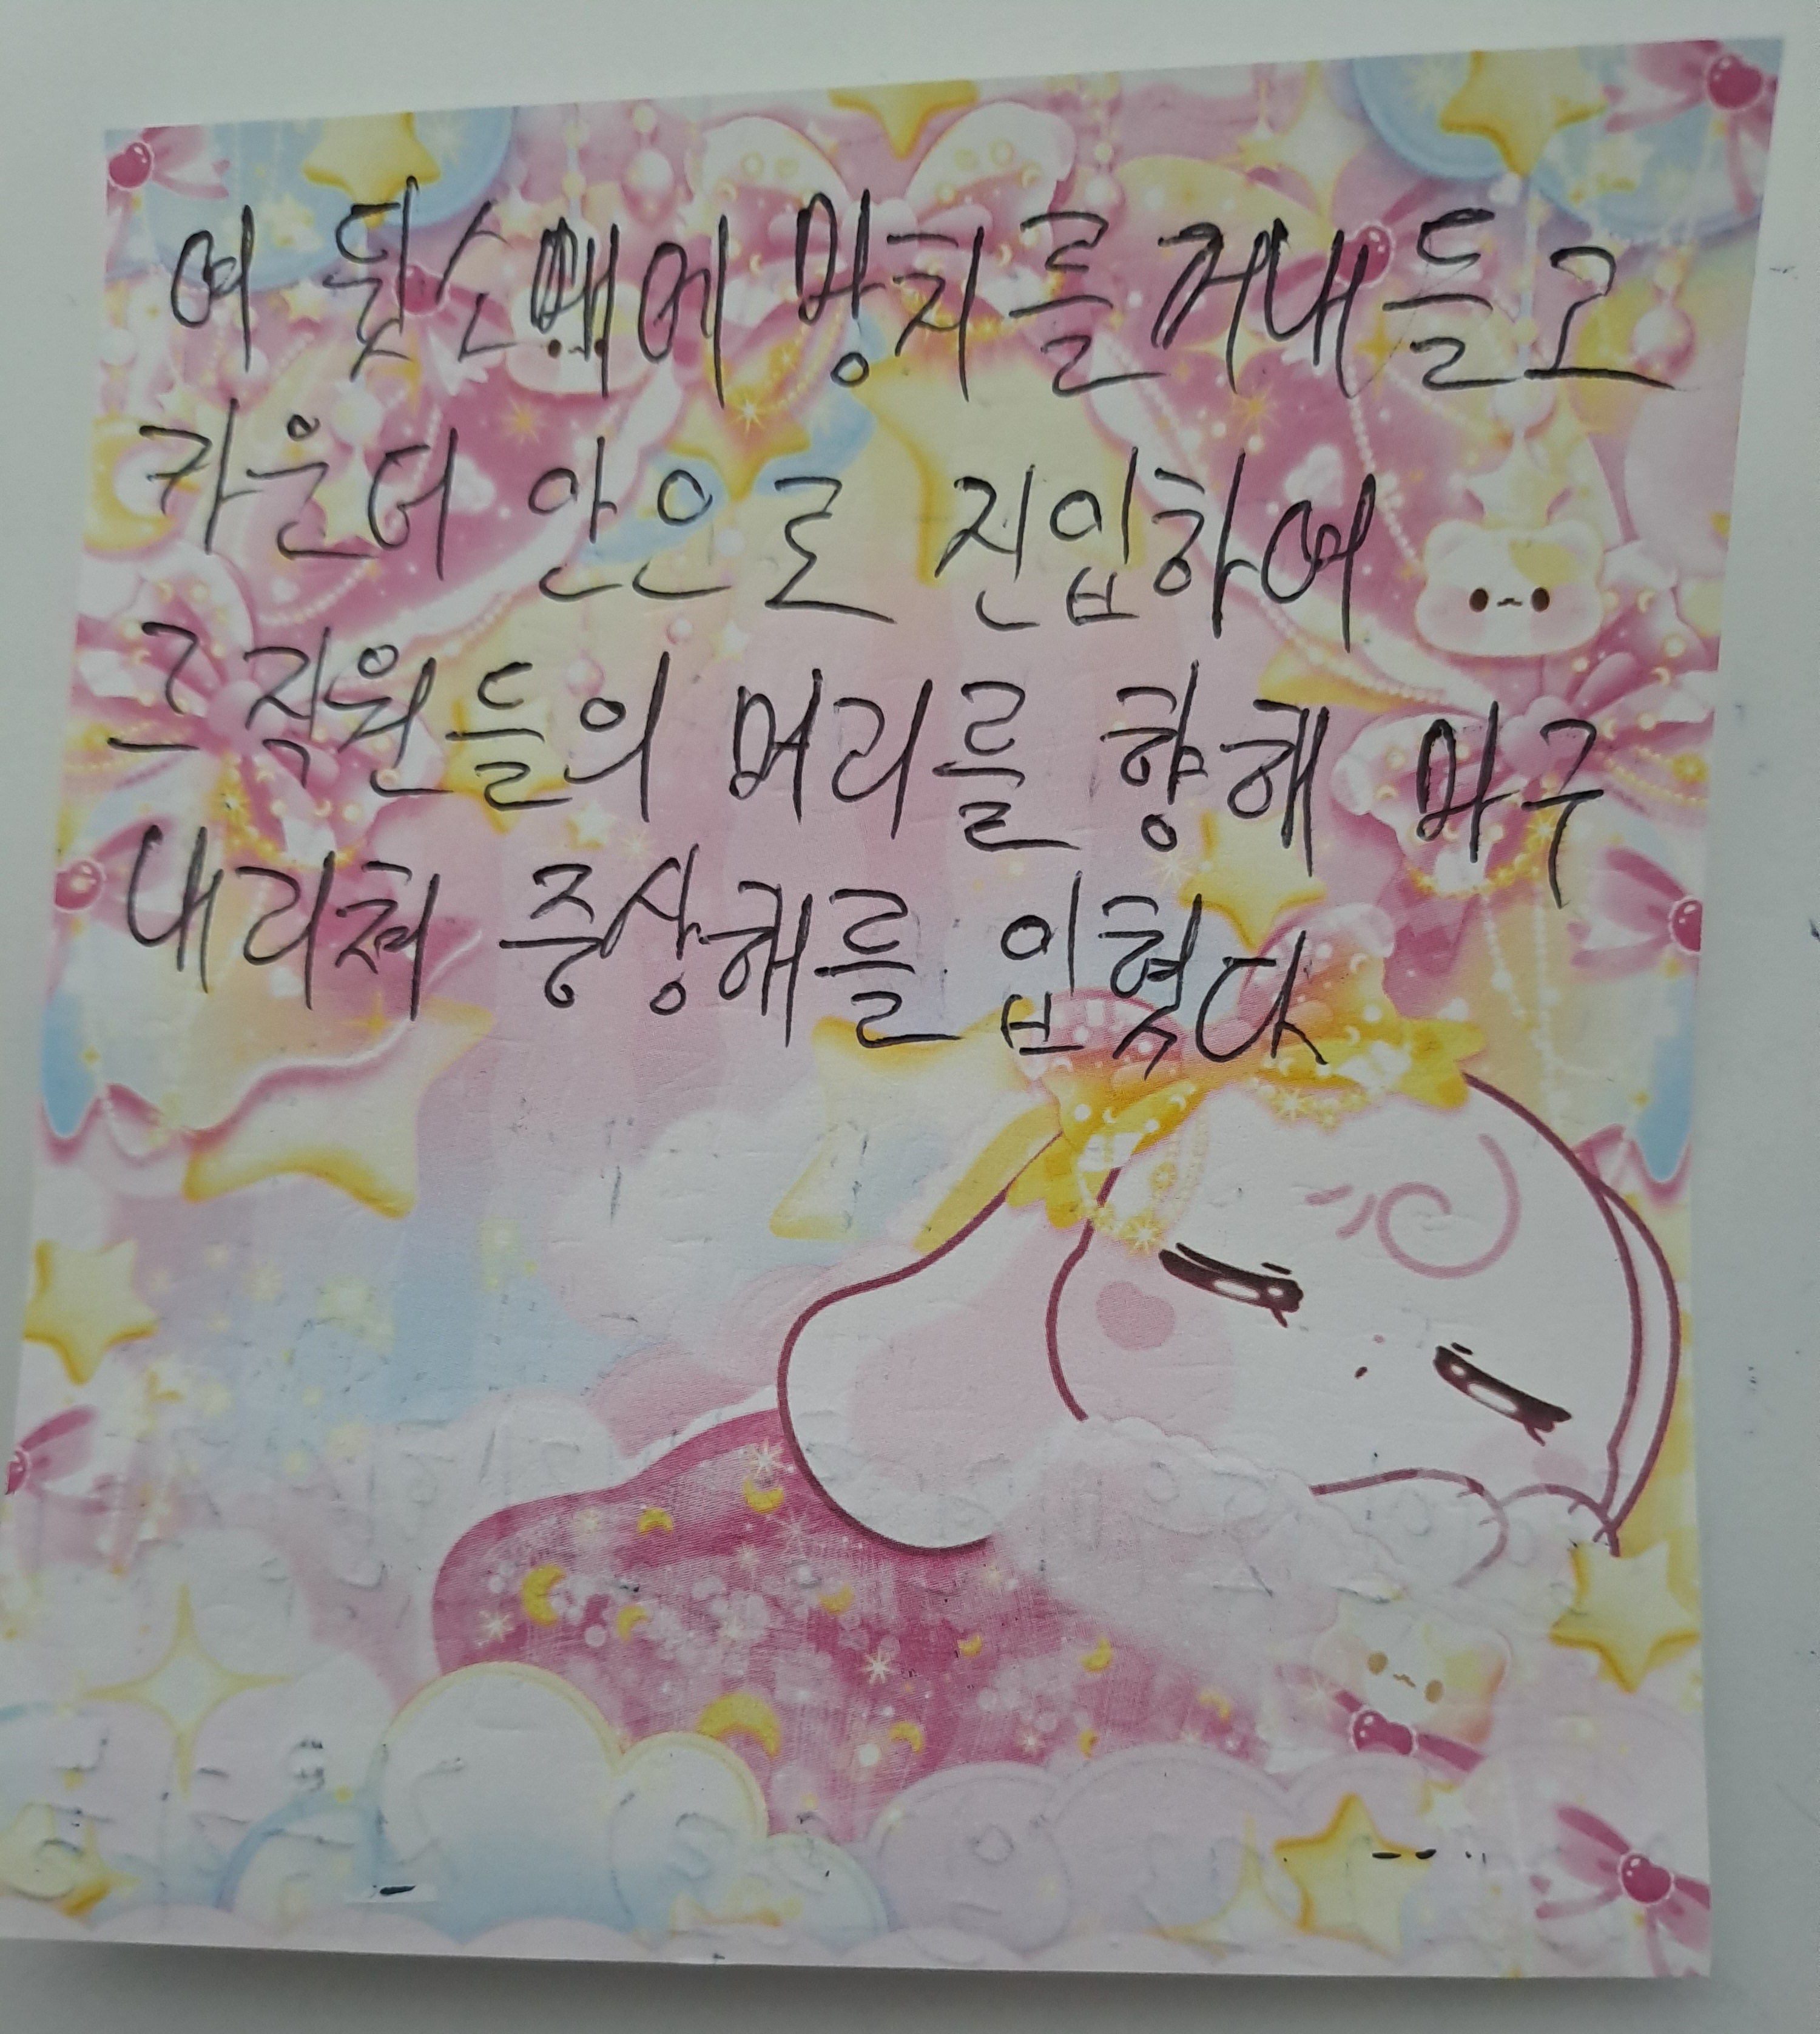 여 뒷소매에 망치를 꺼내 들고
카운터 안으로 진입하여
그 직원들의 머리를 향해 마구
내리쳐 중상해를 입혔다